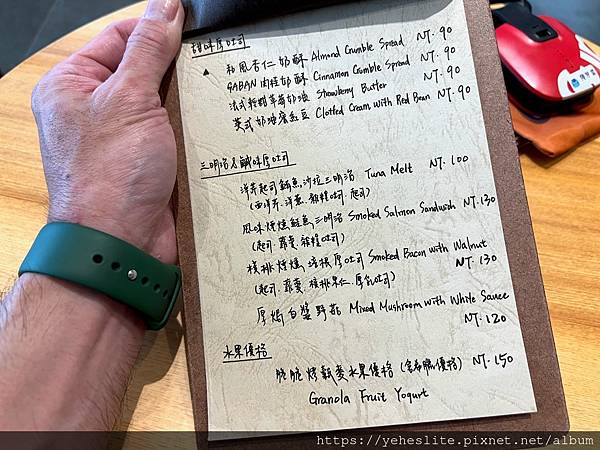 甜味厚吐司
▲ 和風杏仁奶酥 Almond Crumble Spread NT. 90
GABAN肉桂奶酥 Cinnamon Crumble Spread NT. 90
法式輕甜草莓奶油 Strawberry Butter NT. 90
英式奶油蜜紅豆 Clotted Cream with Red Bean NT. 90
三明治&鹹味厚吐司
洋芹起司鮪魚沙拉三明治 Tuna Melt NT. 100
(西洋芹.洋蔥.雜糧吐司.起司)
風味烤燻鮭魚三明治 Smoked Salmon Sandwich NT. 130
(起司.蘿蔓.雜糧吐司)
核桃烤燻培根厚吐司 Smoked Bacon with Walnut
(起司.蘿蔓.核桃果仁.厚吐司) NT. 130
厚焗白醬野菇 Mixed Mushroom with White Sauce
NT. 120
水果優格
脆脆烤穀麥水果優格 (含希臘優格) NT. 150
Granola Fruit Yogurt
https://yeheslite.pixnet.net/album